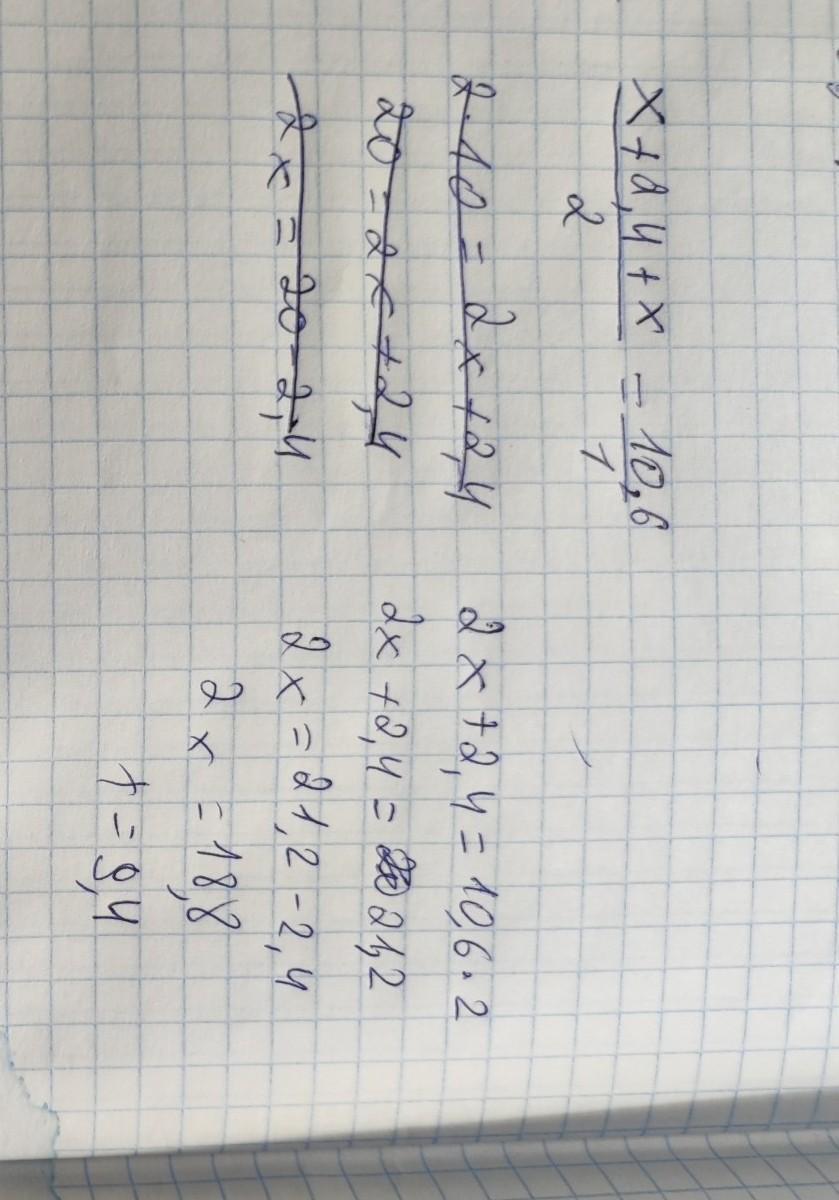 x + 2,4 + x / 2 = 10,6 / 1
2·10 = 2x + 2,4
20 = 2x + 2,4
2x = 20 - 2,4
2x + 2,4 = 10,6·2
2x + 2,4 = 21,2
2x = 21,2 - 2,4
2x = 18,8
x = 9,4